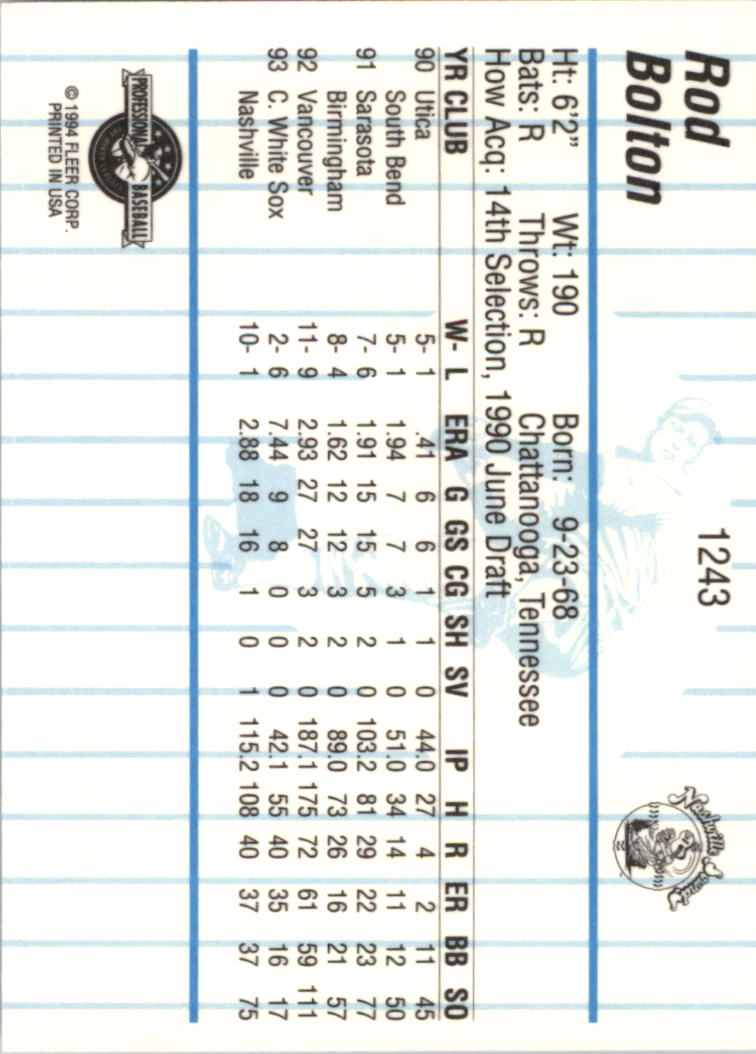 Rod
Bolton
1243
Nashville Sounds
Ht: 6'2" Wt: 190 Born: 9-23-68
Bats: R Throws: R Chattanooga, Tennessee
How Acq: 14th Selection, 1990 June Draft
YR CLUB W- L ERA G GS CG SH SV IP H R ER BB SO
90 Utica 5- 1 .41 6 6 1 1 0 44.0 27 4 2 11 45
South Bend 5- 1 1.94 7 7 3 1 0 51.0 34 14 11 12 50
91 Sarasota 7- 6 1.91 15 15 5 2 0 103.2 81 29 22 23 77
Birmingham 8- 4 1.62 12 12 3 2 0 89.0 73 26 16 21 57
92 Vancouver 11- 9 2.93 27 27 3 2 0 187.1 175 72 61 59 111
93 C. White Sox 2- 6 7.44 9 8 0 0 0 42.1 55 40 35 16 17
Nashville 10- 1 2.88 18 16 1 0 1 115.2 108 40 37 37 75
PROFESSIONAL BASEBALL
© 1994 FLEER CORP.
PRINTED IN USA